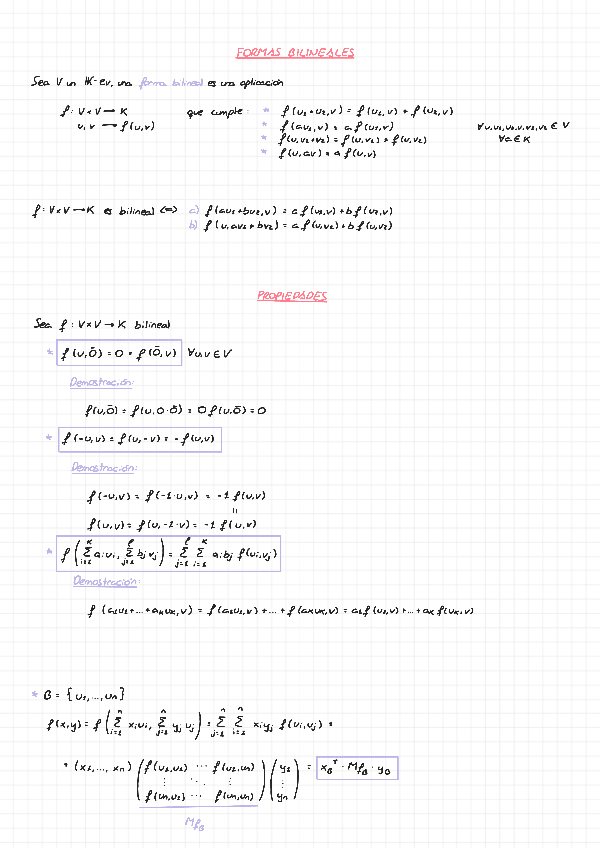 FORMAS BILINEALES
Sea V un K-ev, una forma bilineal es una aplicación
f: V×V → K que cumple: * f(u₁+u₂,v) = f(u₁,v) + f(u₂,v)
u,v → f(u,v) * f(au₁,v) = a f(u₁,v) ∀u,u₁,u₂,v,v₁,v₂ ∈ V
* f(u,v₁+v₂) = f(u,v₁) + f(u,v₂) ∀a ∈ K
* f(u,av) = a f(u,v)
f: V×V → K es bilineal <=> a) f(au₁+bu₂,v) = a f(u₁,v) + b f(u₂,v)
b) f(u,av₁+bv₂) = a f(u,v₁) + b f(u,v₂)
PROPIEDADES
Sea f: V×V → K bilineal
* f(u,0̄) = 0 = f(0̄,v) ∀u,v ∈ V
Demostración:
f(u,0̄) = f(u,0·0̄) = 0 f(u,0̄) = 0
* f(-u,v) = f(u,-v) = -f(u,v)
Demostración:
f(-u,v) = f(-1·u,v) = -1 f(u,v)
=
f(u,v) = f(u,-1·v) = -1 f(u,v)
* f(∑ᵢ₌₁ᴷ aᵢuᵢ, ∑ⱼ₌₁ˡ bⱼvⱼ) = ∑ⱼ₌₁ˡ ∑ᵢ₌₁ᴷ aᵢbⱼ f(uᵢ,vⱼ)
Demostración:
f(a₁u₁+...+aₖuₖ,v) = f(a₁u₁,v)+...+f(aₖuₖ,v) = a₁f(u₁,v)+...+aₖf(uₖ,v)
* B = {u₁,...,uₙ}
f(x,y) = f(∑ᵢ₌₁ⁿ xᵢuᵢ, ∑ⱼ₌₁ⁿ yⱼuⱼ) = ∑ⱼ₌₁ⁿ ∑ᵢ₌₁ⁿ xᵢyⱼ f(uᵢ,uⱼ) =
= (x₁,...,xₙ) (f(u₁,u₁) ... f(u₁,uₙ) (y₁ = x_Bᵀ · Mf_B · y_B
⋮ ⋱ ⋮ ⋮
f(uₙ,u₁) ... f(uₙ,uₙ)) yₙ)
Mf_B